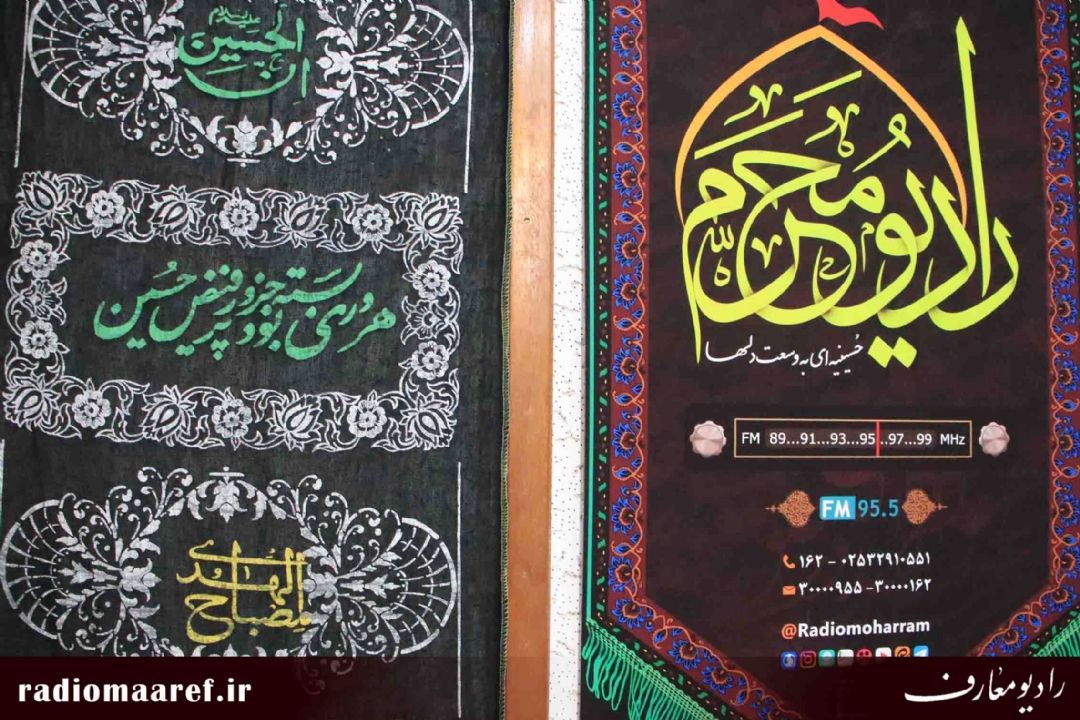 ان الحسین
علیه‌السلام
هر در که بسته بود جز در پرفیض حسین
مصباح الهدی
رادیو محرم
حسینیه‌ای به وسعت دلها
FM 89...91...93...95...97...99 MHz
FM 95.5
۱۶۲ - ۰۲۵۳۲۹۱۰۵۵۱
۳۰۰۰۰۹۵۵ - ۳۰۰۰۰۱۶۲
@Radiomoharram
radiomaaref.ir
رادیو معارف